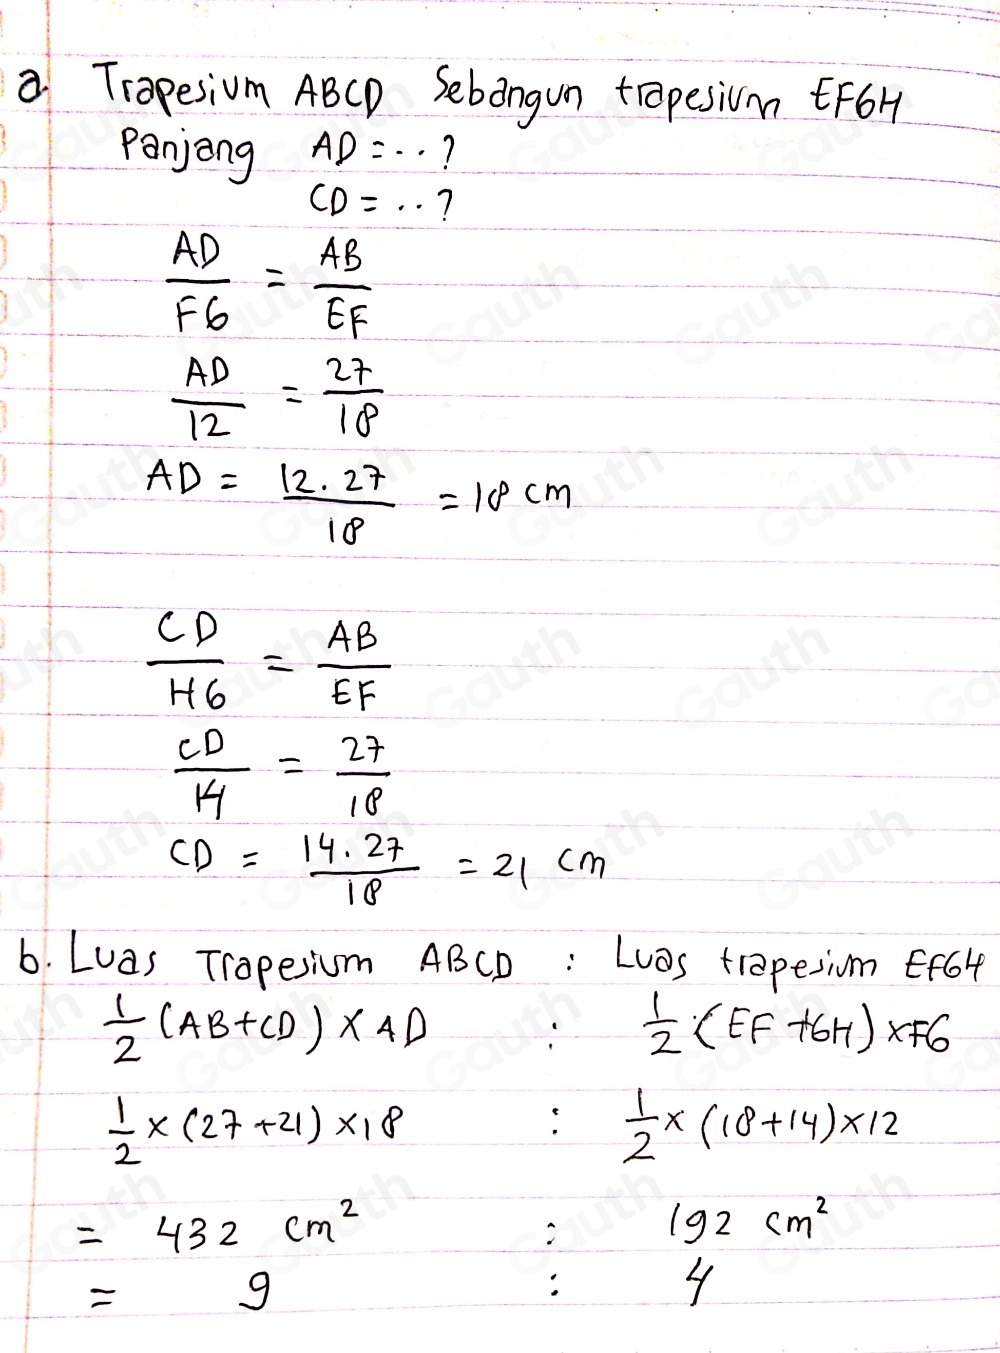 a. Trapesium ABCD Sebangun trapesium EFGH
Panjang AD = .. ?
CD = .. ?
AD/FG = AB/EF
AD/12 = 27/18
AD = 12.27/18 = 18 cm
CD/HG = AB/EF
CD/14 = 27/18
CD = 14.27/18 = 21 cm
b. Luas Trapesium ABCD : Luas trapesium EFGH
1/2 (AB+CD) × AD : 1/2 .(EF+GH) × FG
1/2 × (27+21) × 18 : 1/2 × (18+14) × 12
= 432 cm² : 192 cm²
= 9 : 4